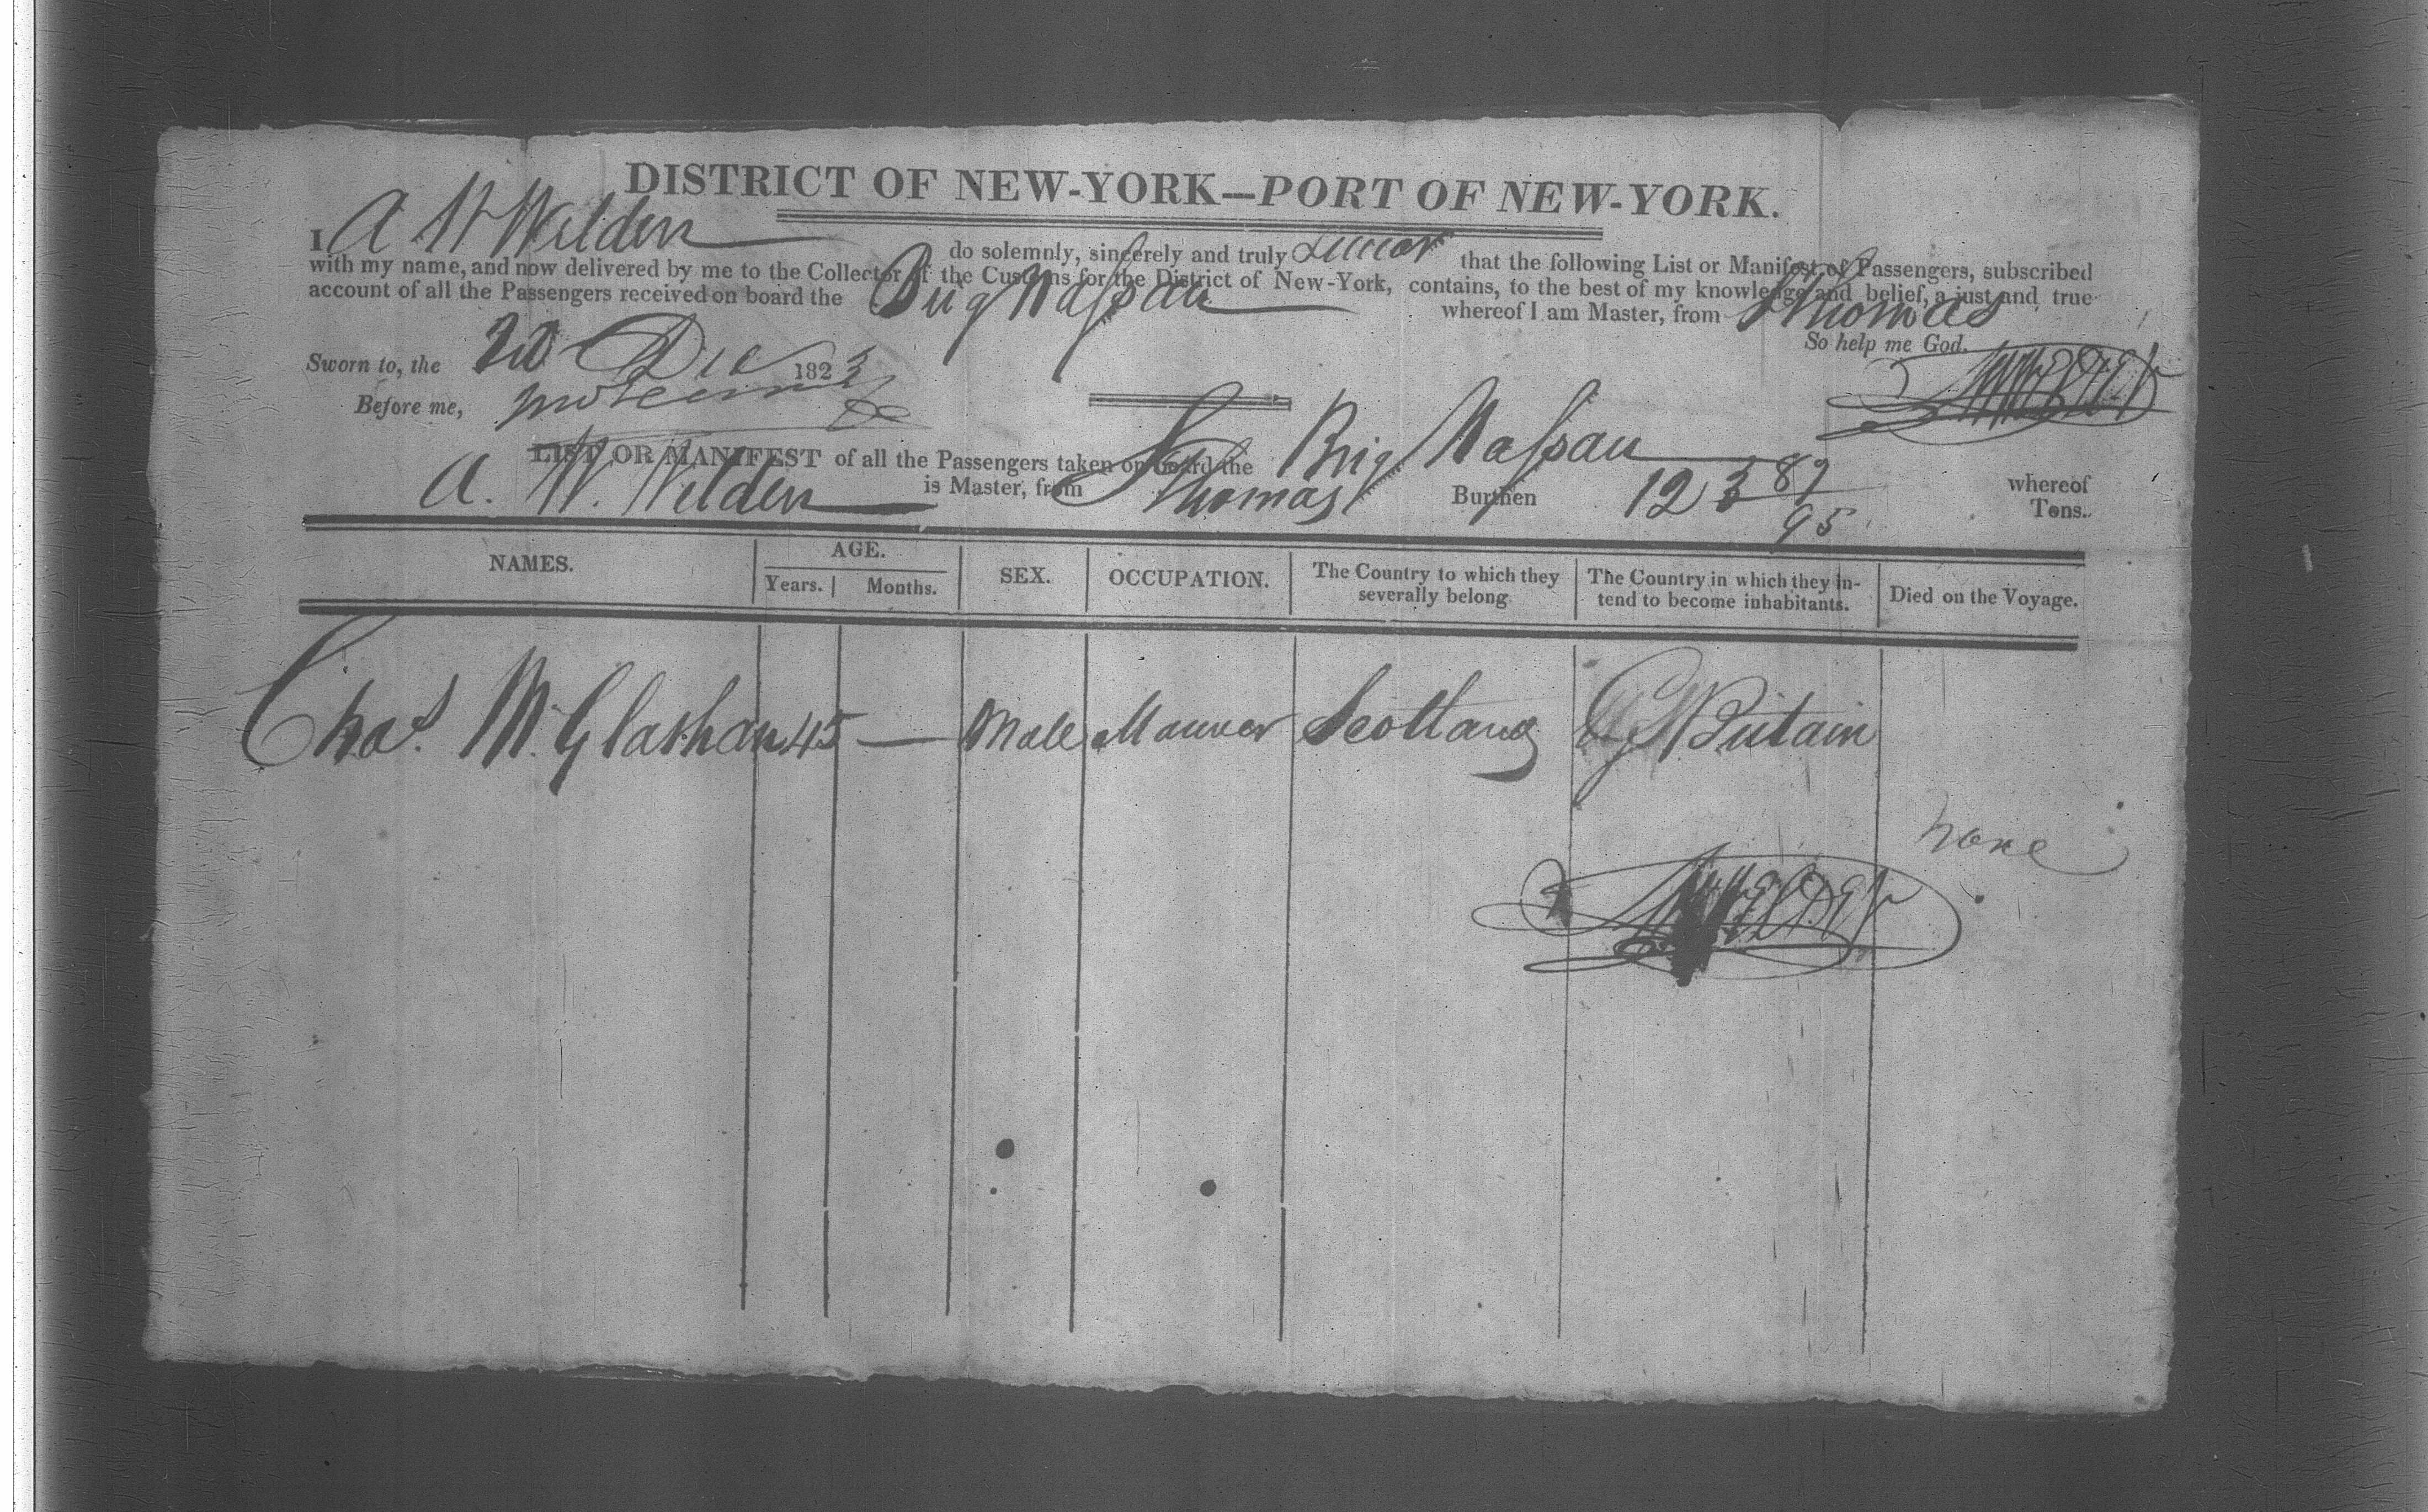 DISTRICT OF NEW-YORK—PORT OF NEW-YORK.
I A W Welden do solemnly, sincerely and truly swear that the following List or Manifest of Passengers, subscribed
with my name, and now delivered by me to the Collector of the Customs for the District of New-York, contains, to the best of my knowledge and belief, a just and true
account of all the Passengers received on board the Brig Nassau whereof I am Master, from St Thomas
So help me God.
Sworn to, the Dec 1823
Before me,
LIST OR MANIFEST of all the Passengers taken on board the Brig Nassau whereof
A. W. Welden is Master, from St Thomas Burthen 123 87/95 Tons.
NAMES. AGE. SEX. OCCUPATION. The Country to which they severally belong The Country in which they intend to become inhabitants. Died on the Voyage.
Years. Months.
Chas. M. Glashan 45 — Male Scotland Gt Britain
none